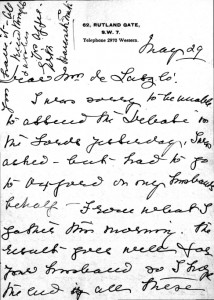 62, RUTLAND GATE,
S.W. 7.
Telephone 2972 Western.
May 29
Dear Mrs de Laszlo.
I was sorry to be unable
to attend the Debate in
the Lords yesterday, I was
asked – but had to go
to Oxford on my husband's
behalf – From what I
gather this morning the
result goes well for
your husband so I hope
the end of all these